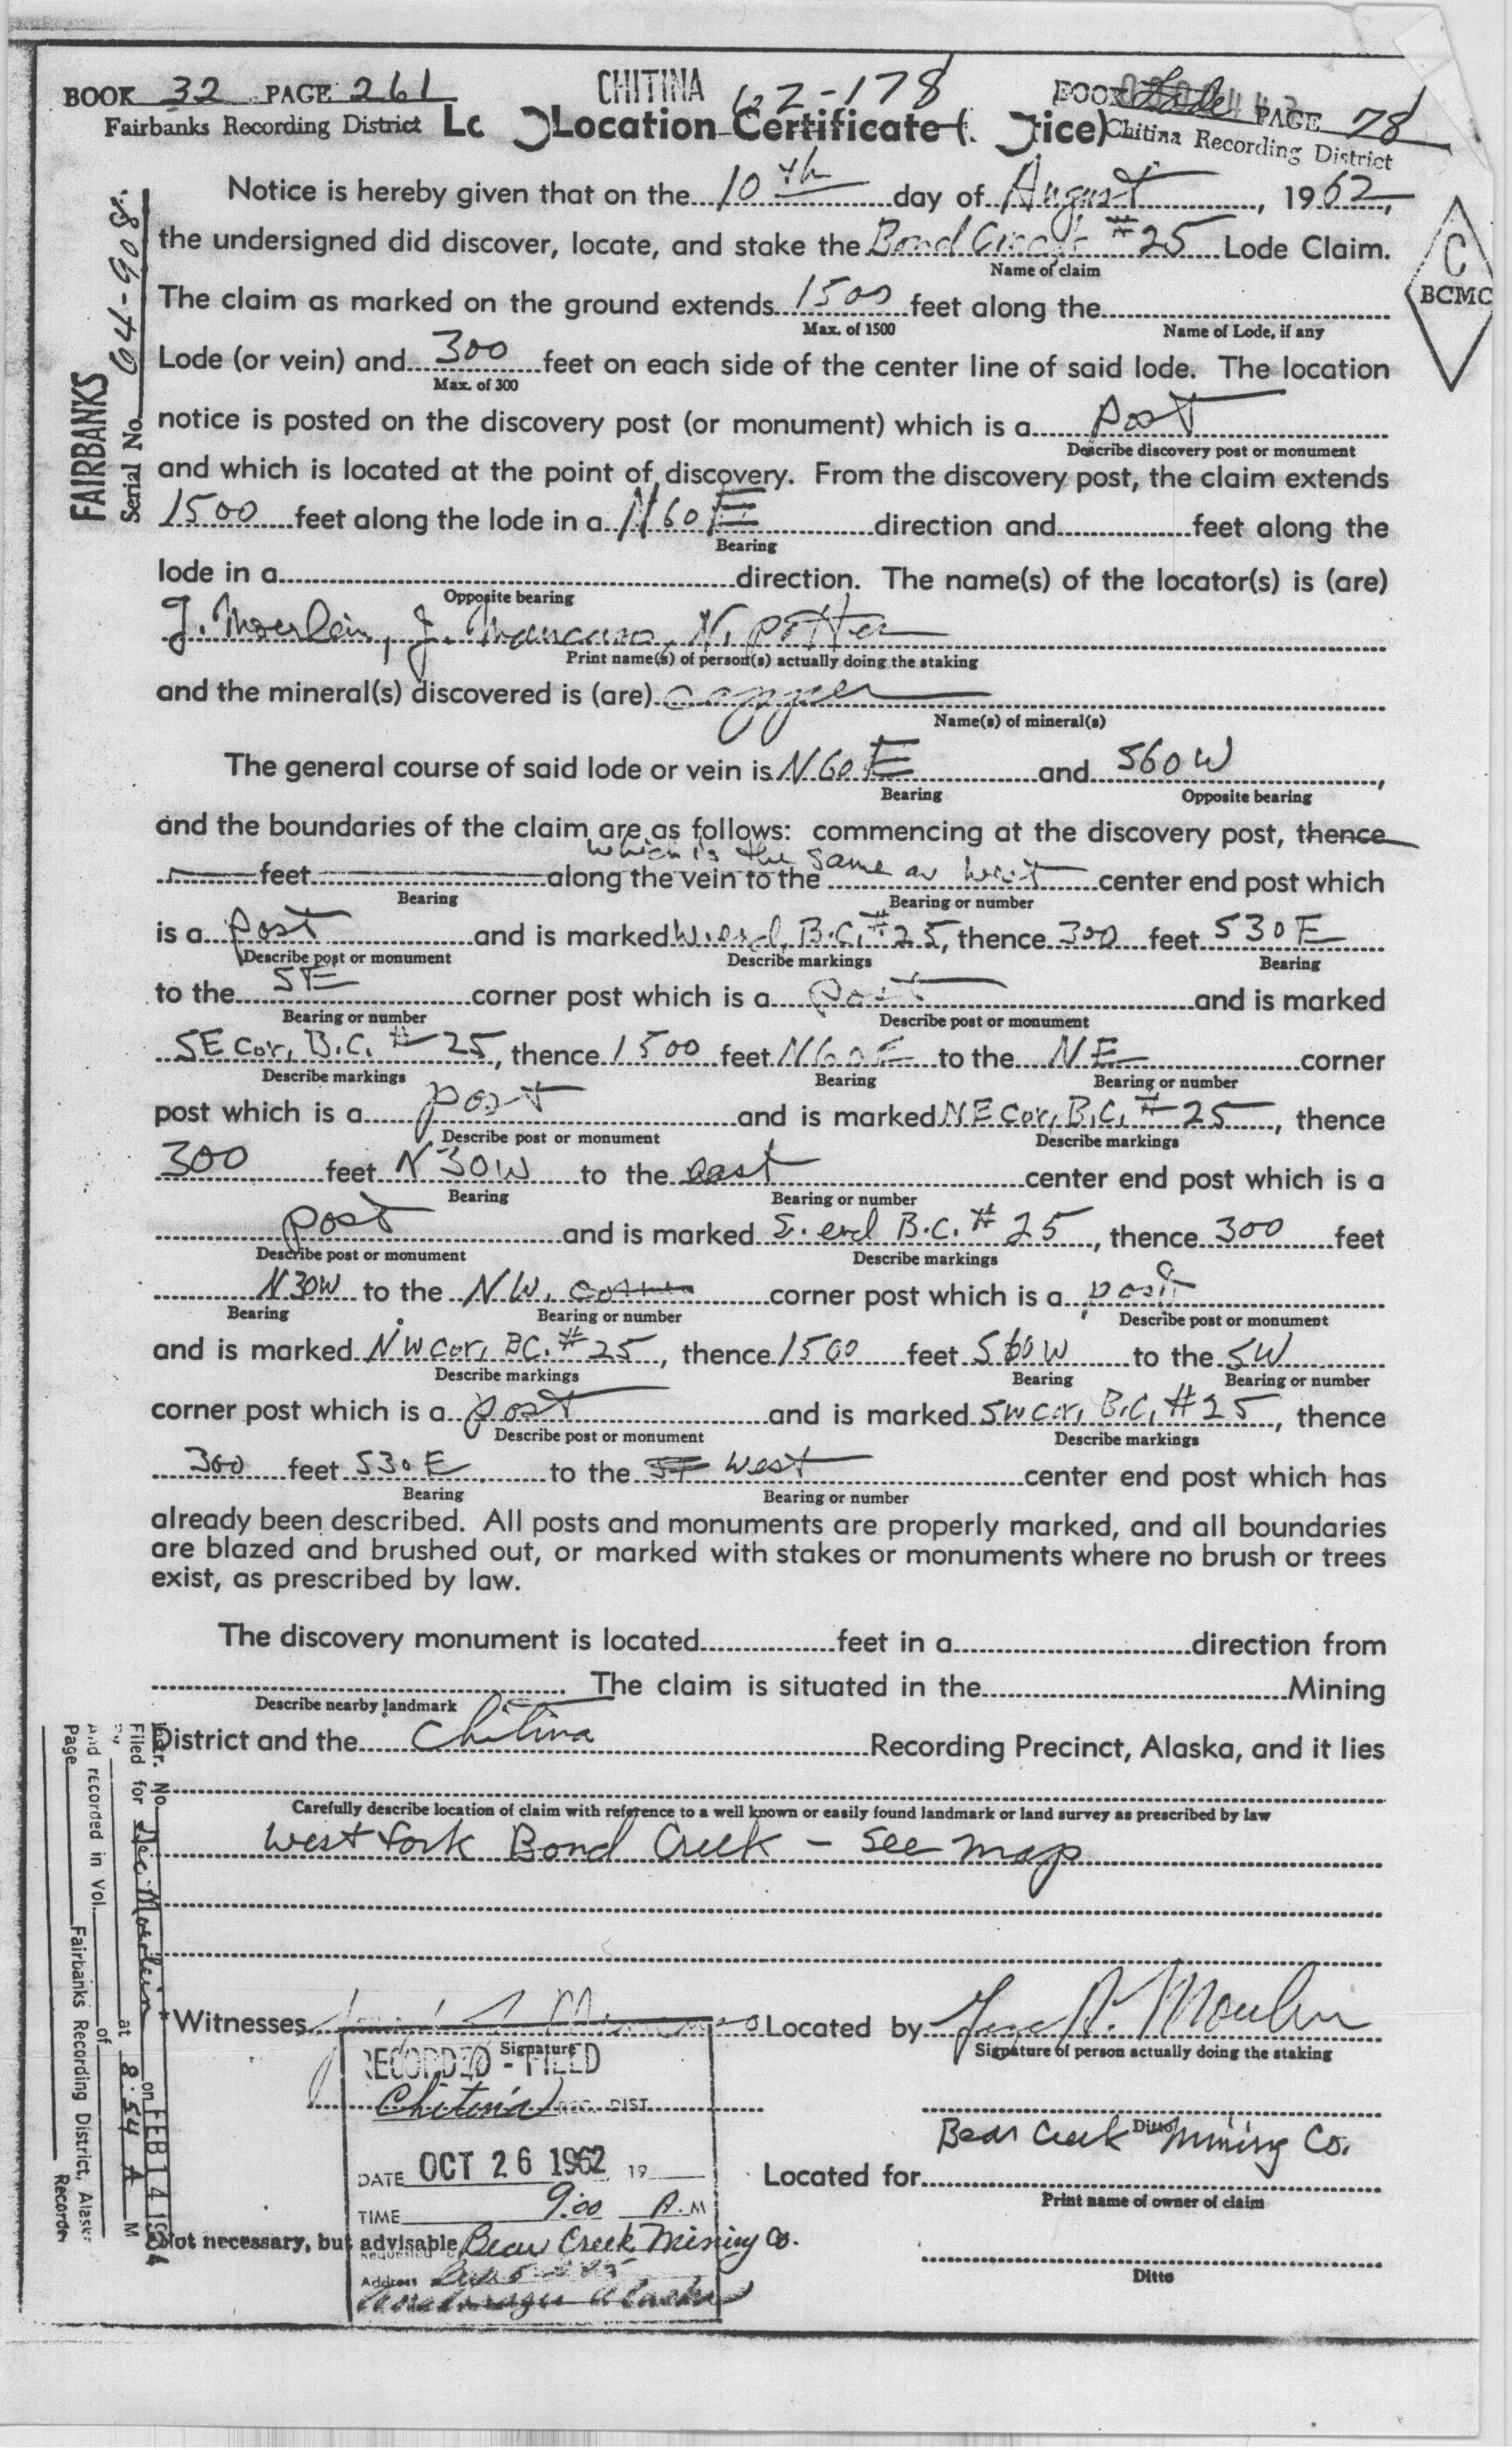 BOOK 32 PAGE 261
Fairbanks Recording District
CHITINA 62-178
BOOK Lode PAGE 78
Chitina Recording District
Location Certificate
Notice is hereby given that on the 10th day of August, 1962,
the undersigned did discover, locate, and stake the Bond Creek #25 Lode Claim.
Name of claim
C
BCMC
The claim as marked on the ground extends 1500 feet along the
Max. of 1500 Name of Lode, if any
Lode (or vein) and 300 feet on each side of the center line of said lode. The location
Max. of 300
notice is posted on the discovery post (or monument) which is a post
Describe discovery post or monument
and which is located at the point of discovery. From the discovery post, the claim extends
1500 feet along the lode in a N60E direction and feet along the
Bearing
lode in a direction. The name(s) of the locator(s) is (are)
Opposite bearing
J. Moerlein, J. Mancuso, N. Potter
Print name(s) of person(s) actually doing the staking
and the mineral(s) discovered is (are) copper
Name(s) of mineral(s)
The general course of said lode or vein is N60E and S60W,
Bearing Opposite bearing
and the boundaries of the claim are as follows: commencing at the discovery post, thence
which is the same as west
feet along the vein to the center end post which
Bearing Bearing or number
is a post and is marked W. end, B.C. #25, thence 300 feet S30E
Describe post or monument Describe markings Bearing
to the SE corner post which is a post and is marked
Bearing or number Describe post or monument
SE cor, B.C. #25, thence 1500 feet N60E to the NE corner
Describe markings Bearing Bearing or number
post which is a post and is marked NE cor, B.C. #25, thence
Describe post or monument Describe markings
300 feet N30W to the east center end post which is a
Bearing Bearing or number
post and is marked E. end B.C. #25, thence 300 feet
Describe post or monument Describe markings
N30W to the N.W. corner corner post which is a post
Bearing Bearing or number Describe post or monument
and is marked NW cor, B.C. #25, thence 1500 feet S60W to the SW
Describe markings Bearing Bearing or number
corner post which is a post and is marked SW cor, B.C. #25, thence
Describe post or monument Describe markings
300 feet S30E to the west center end post which has
Bearing Bearing or number
already been described. All posts and monuments are properly marked, and all boundaries
are blazed and brushed out, or marked with stakes or monuments where no brush or trees
exist, as prescribed by law.
The discovery monument is located feet in a direction from
The claim is situated in the Mining
Describe nearby landmark
District and the Chitina Recording Precinct, Alaska, and it lies
Carefully describe location of claim with reference to a well known or easily found landmark or land survey as prescribed by law
West fork Bond Creek - See map
*Witnesses Located by
Signature Signature of person actually doing the staking
Ditto
Bear Creek Mining Co.
Located for
Print name of owner of claim
Ditto
RECORDED - FILED
Chitina REC. DIST.
DATE OCT 26 1962 19
TIME 9:00 A.M
*Not necessary, but advisable
Requested Bear Creek Mining Co.
Address
Alaska
FAIRBANKS
Serial No. 64-908
Instr. No.
Filed for Moerlein on FEB 14
at 8:54 A M
And recorded in Vol. of
Page Fairbanks Recording District, Alaska
Recorder